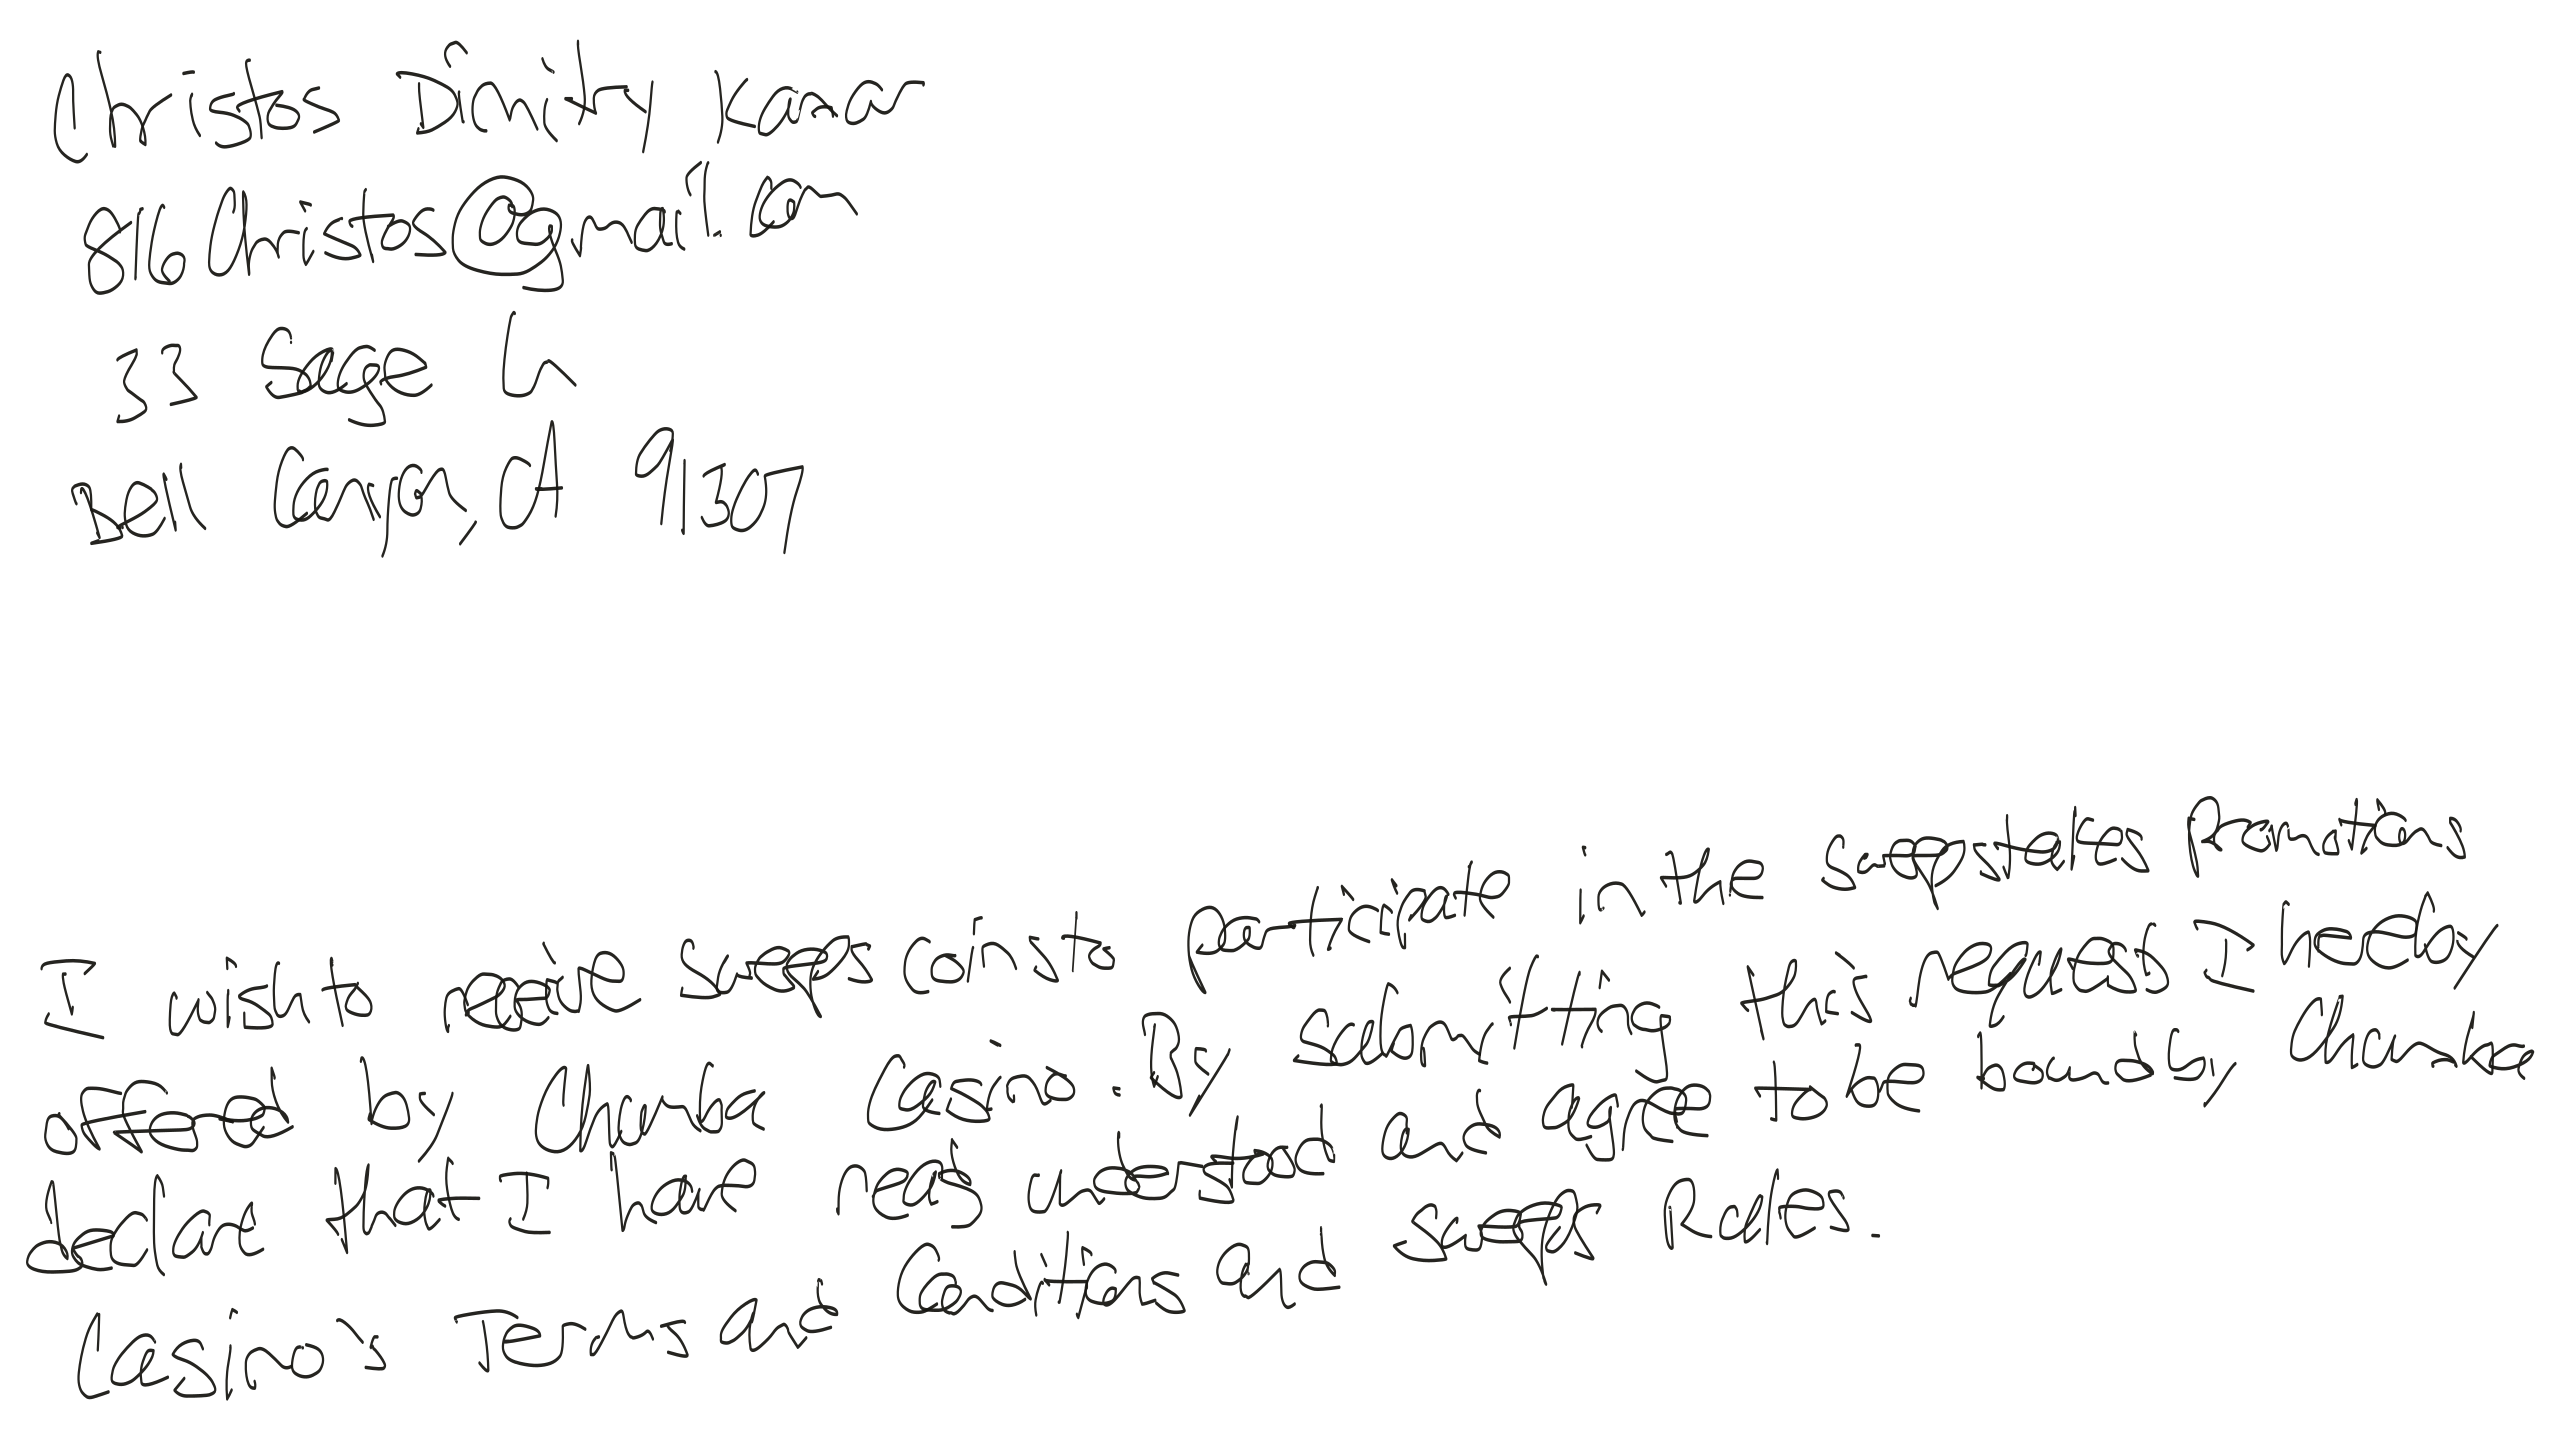 Christos Dimitry Kamar
816Christos@gmail.com
33 Sage Ln
Bell Canyon, CA 91307
I wish to receive sweeps coins to participate in the sweepstakes promotions
offered by Chumba Casino. By submitting this request I hereby
declare that I have read understood and agree to be bound by Chumba
Casino's Terms and Conditions and sweeps Rules.